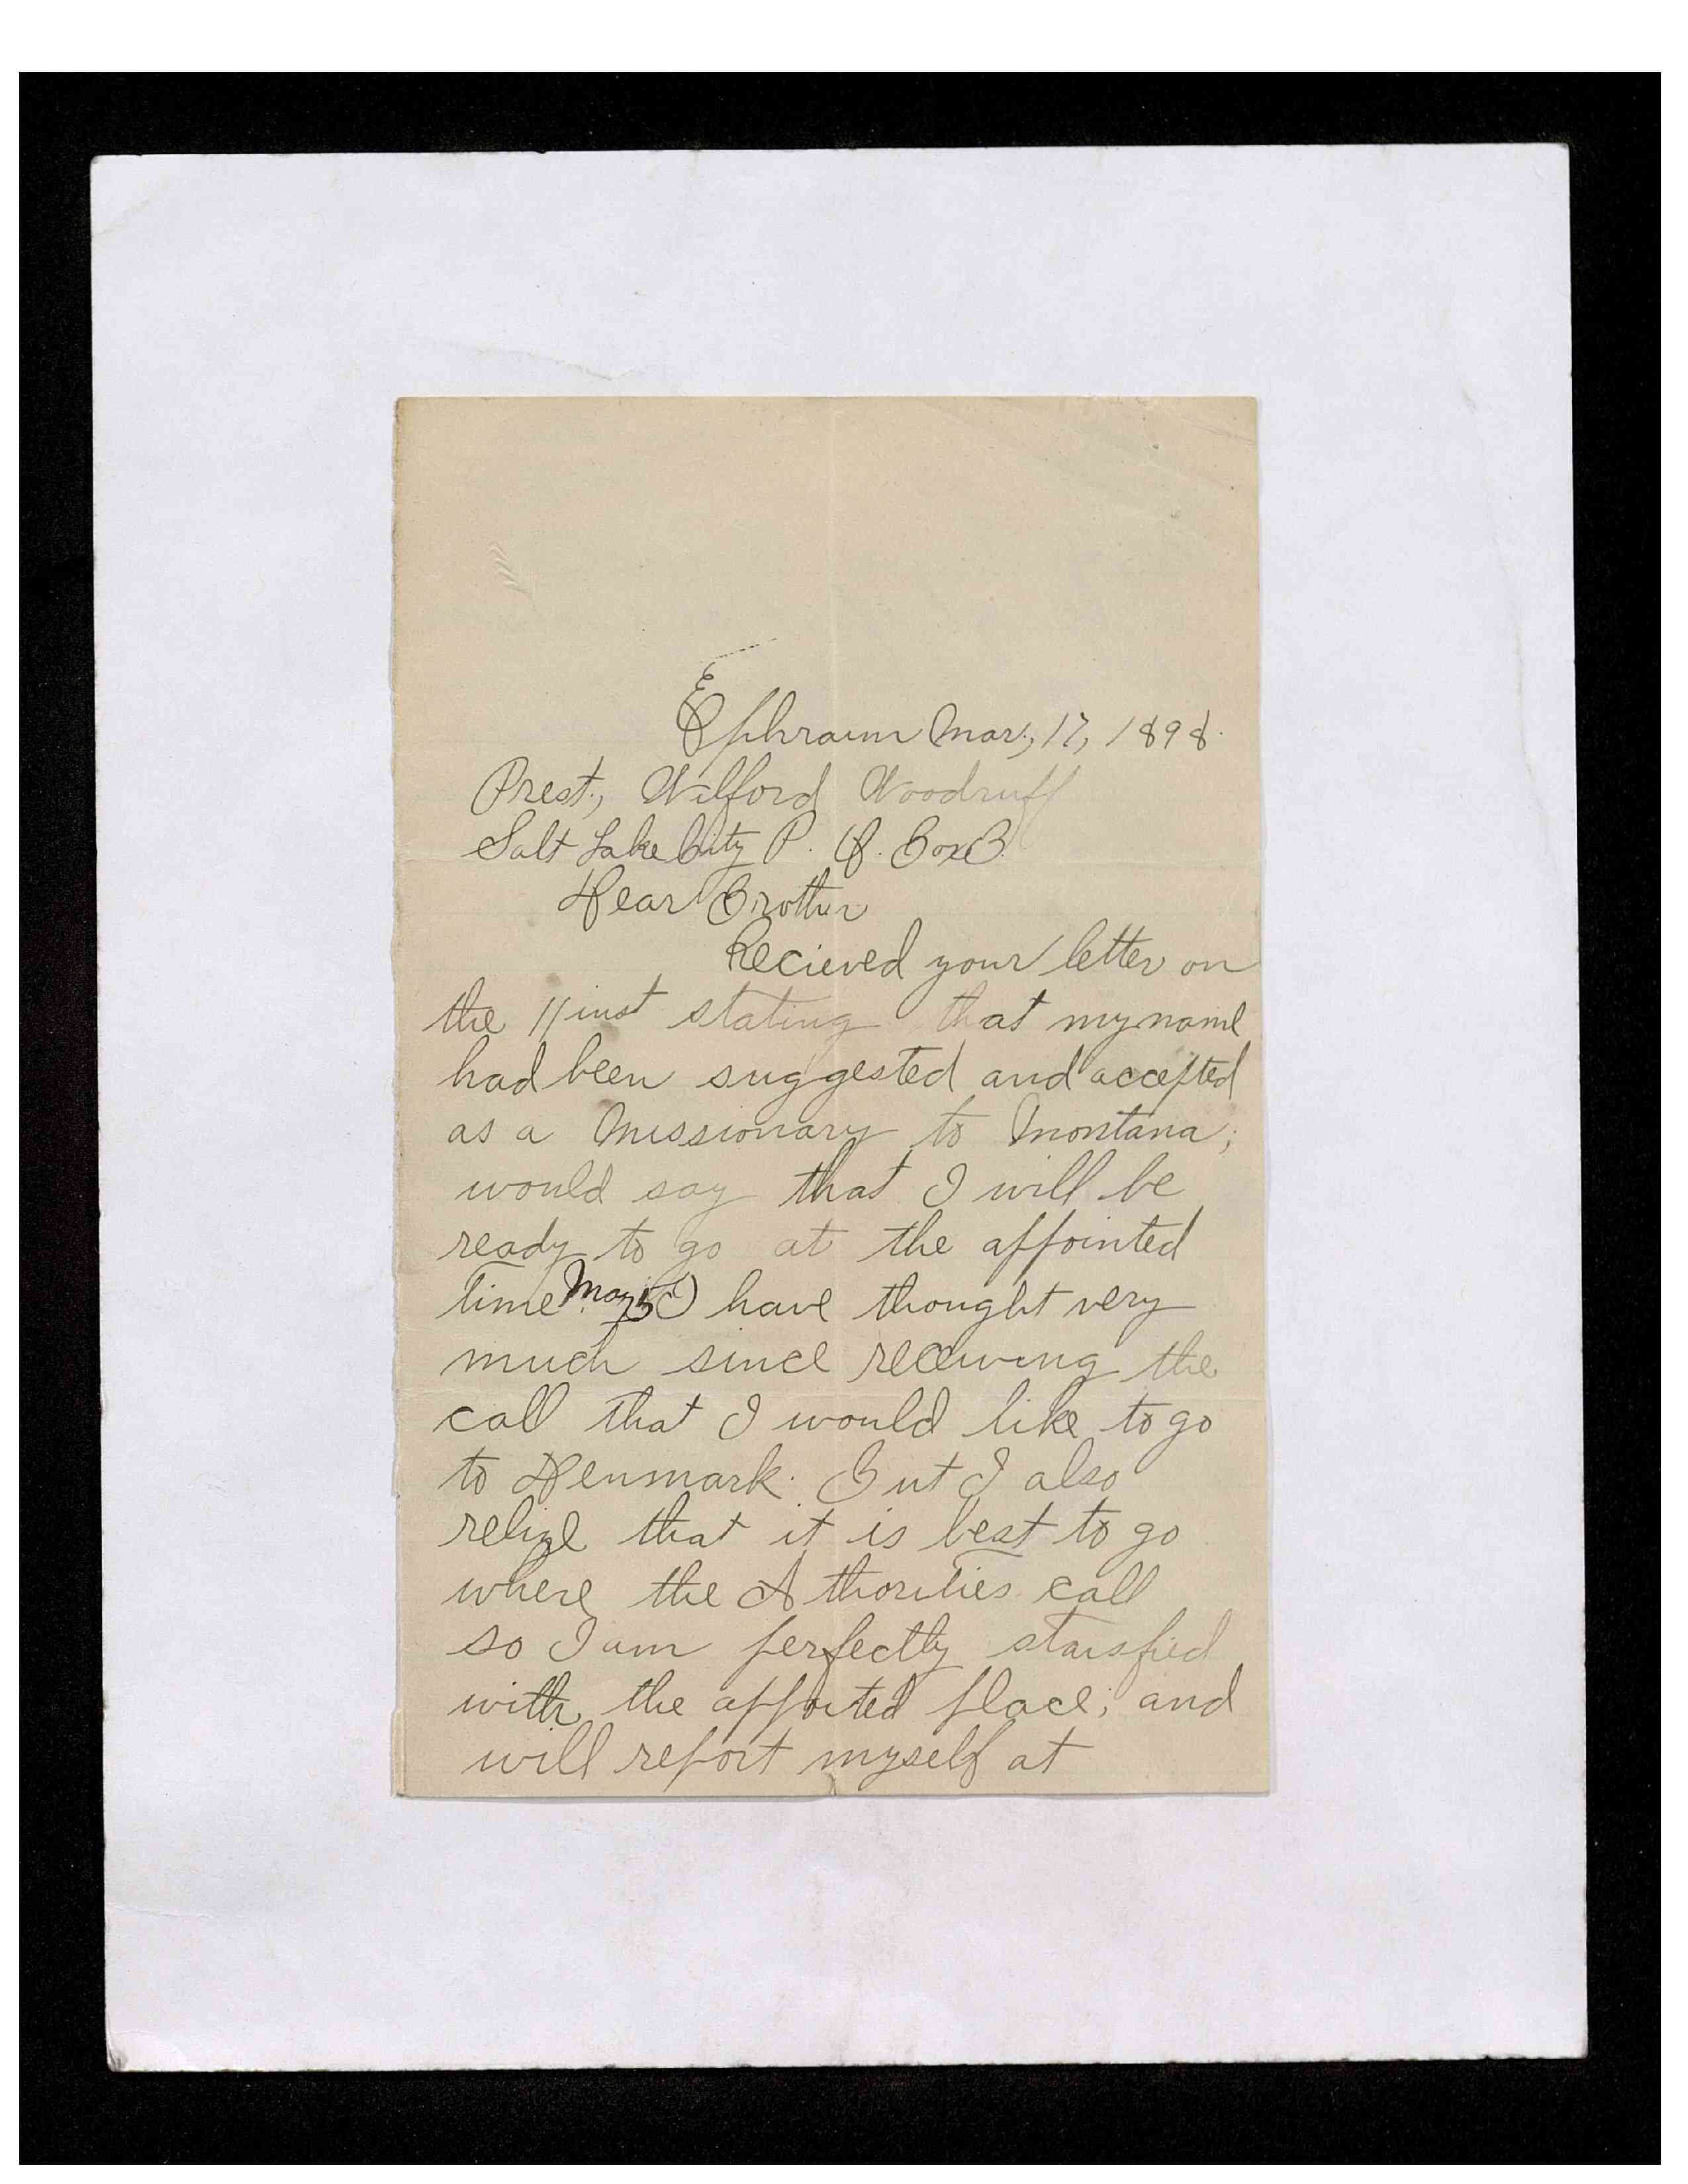 Ephraim Mar., 17, 1898.
Prest., Wilford Woodruff
Salt Lake City P. O. Box B.
Dear Brother
Recieved your letter on
the 11 inst stating that my name
had been suggested and accepted
as a Missionary to Montana;
would say that I will be
ready to go at the appointed
time. May 5 I have thought very
much since receiving the
call that I would like to go
to Denmark. But I also
relize that it is best to go
where the Athorities call
so I am perfectly staisfied
with the appoited place; and
will report myself at